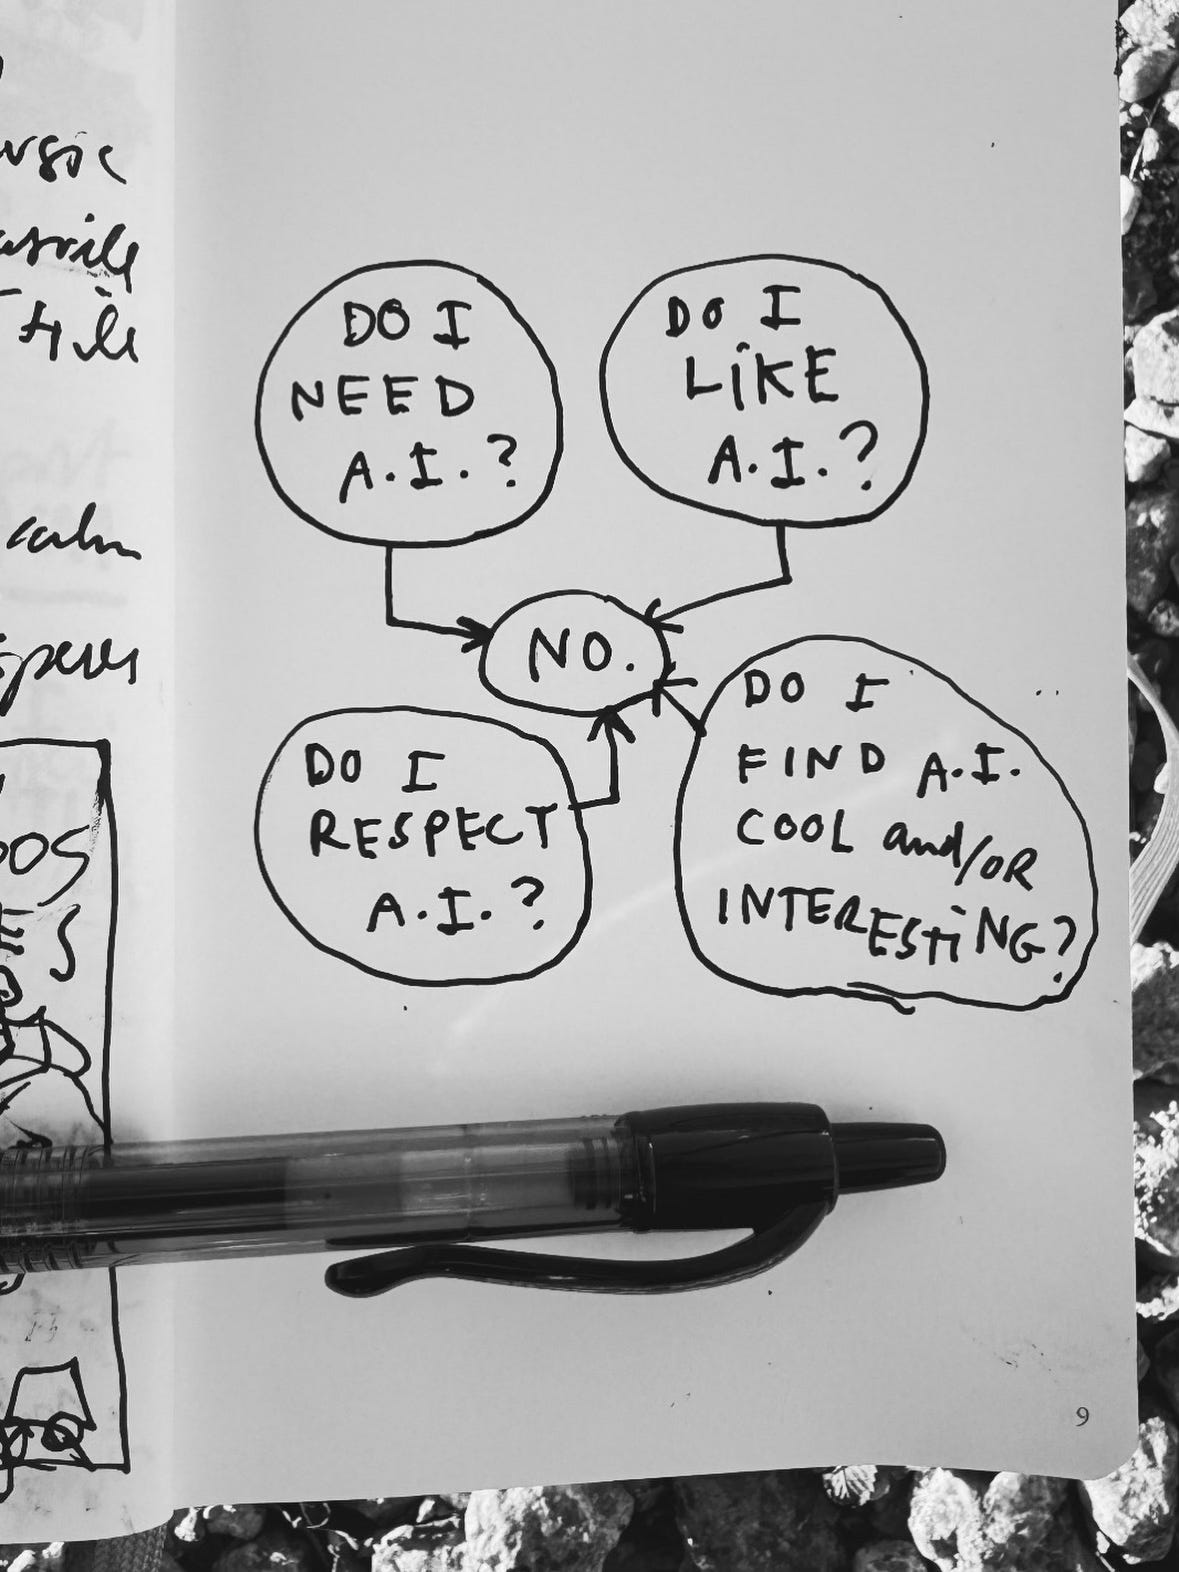 calm
DO I
NEED
A.I.?
DO I
LiKE
A.I.?
NO.
DO I
RESPECT
A.I.?
DO I
FIND A.I.
COOL and/OR
INTERESTiNG?
9